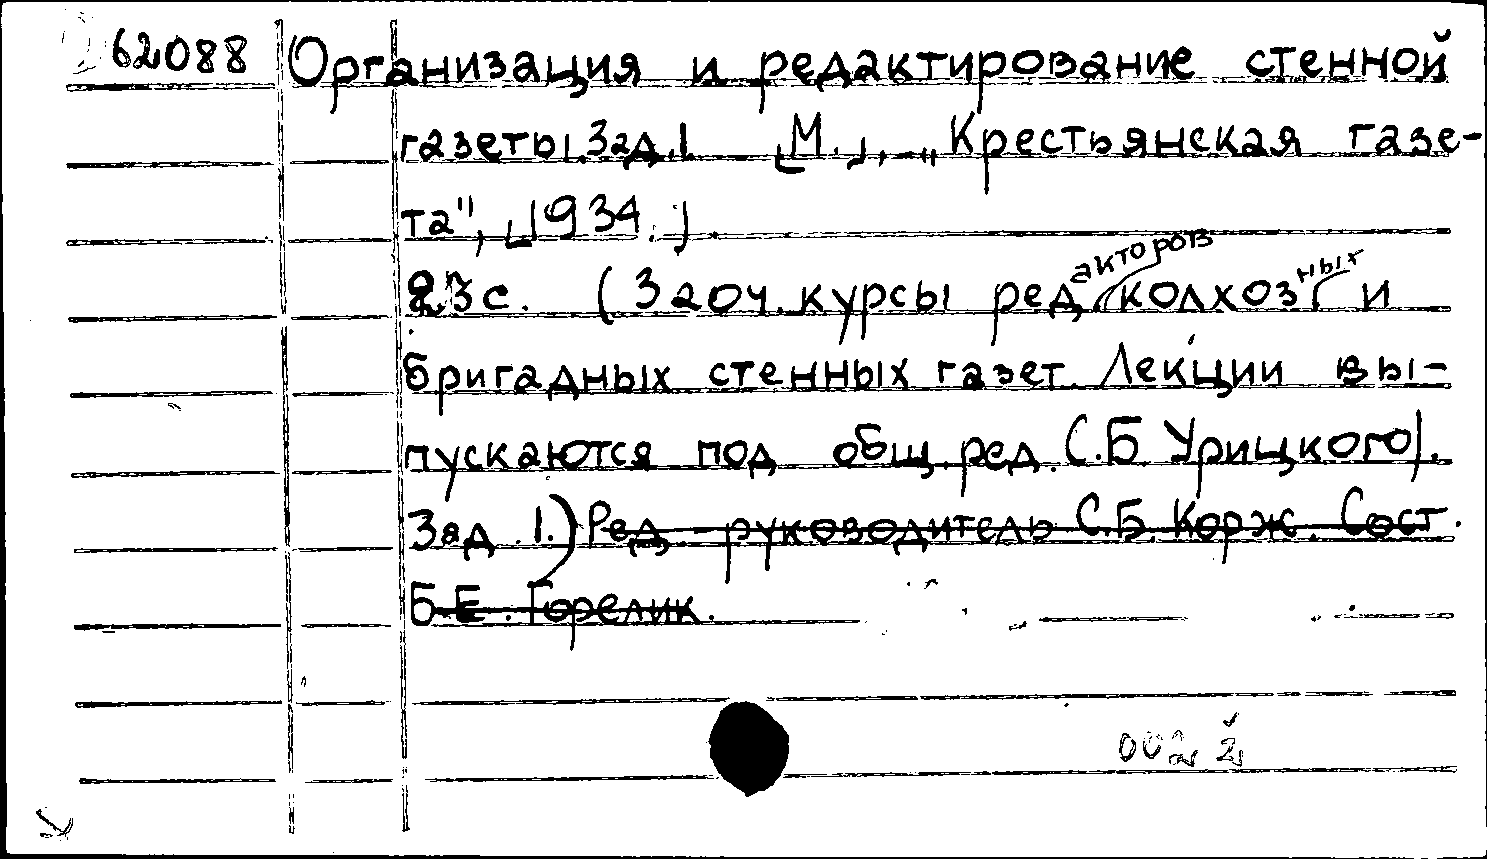 62088 Организация и редактирование стенной
газеты. Зад. 1 [М.], „Крестьянская газе-
та", [1934.].
23 с. (Заоч. курсы редакторов колхозных и
бригадных стенных газет. Лекции вы-
пускаются под общ. ред. С.Б. Урицкого).
Зад. 1.) Ред-руководитель С.Б. Корж. Сост.
Б.Е. Горелик.
002 2